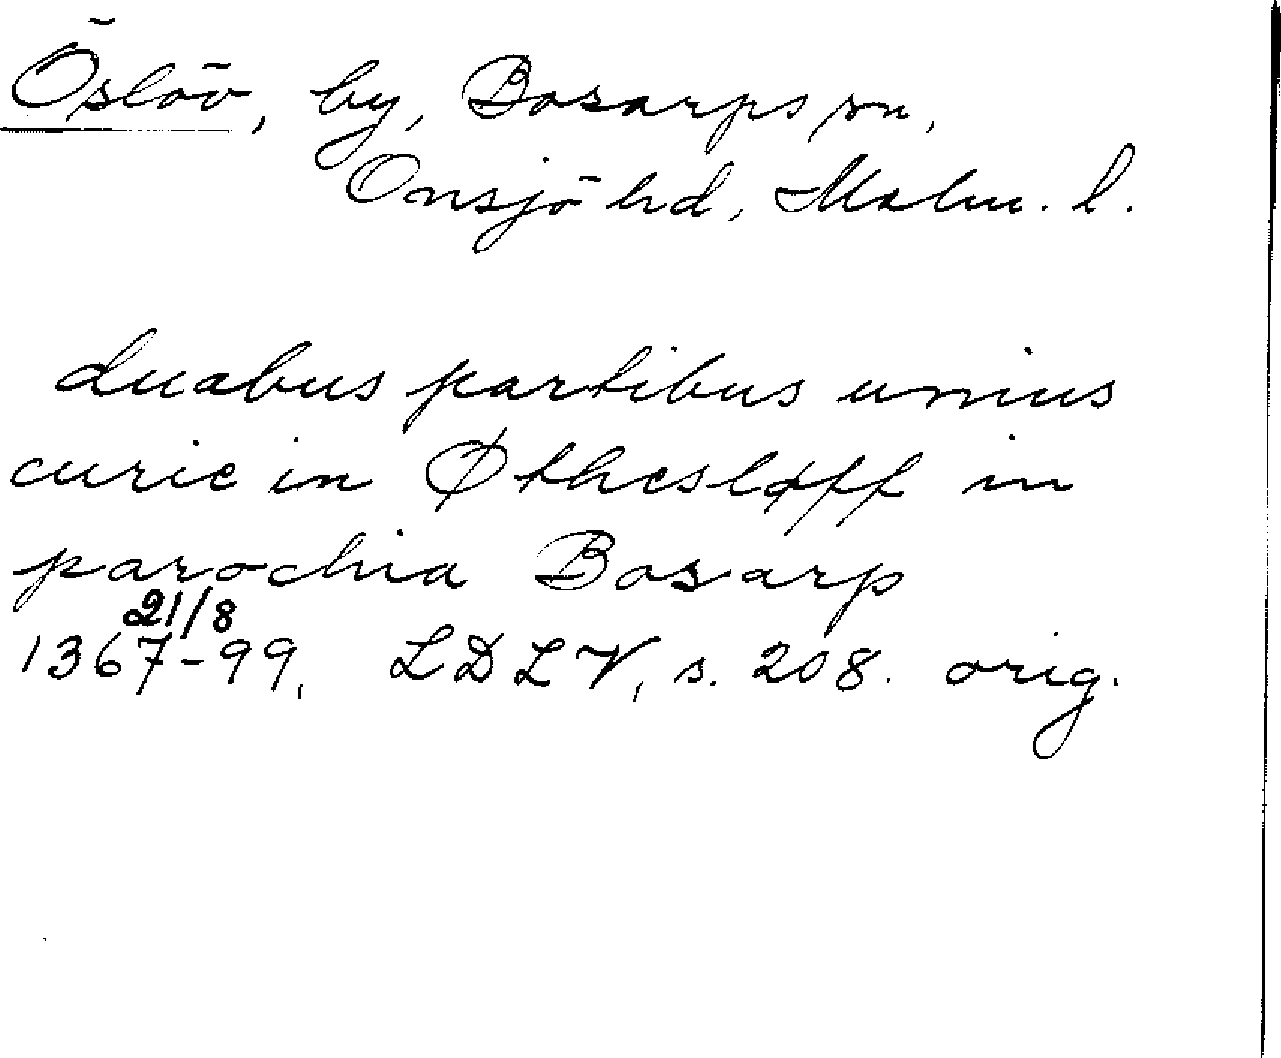 Öslöv, by, Bosarps sn,
Onsjö hd, Malm. l.
duabus partibus unius
curie in Øthesløff in
parochia Bosarp
21/8
1367-99, LDLV, s. 208. orig.